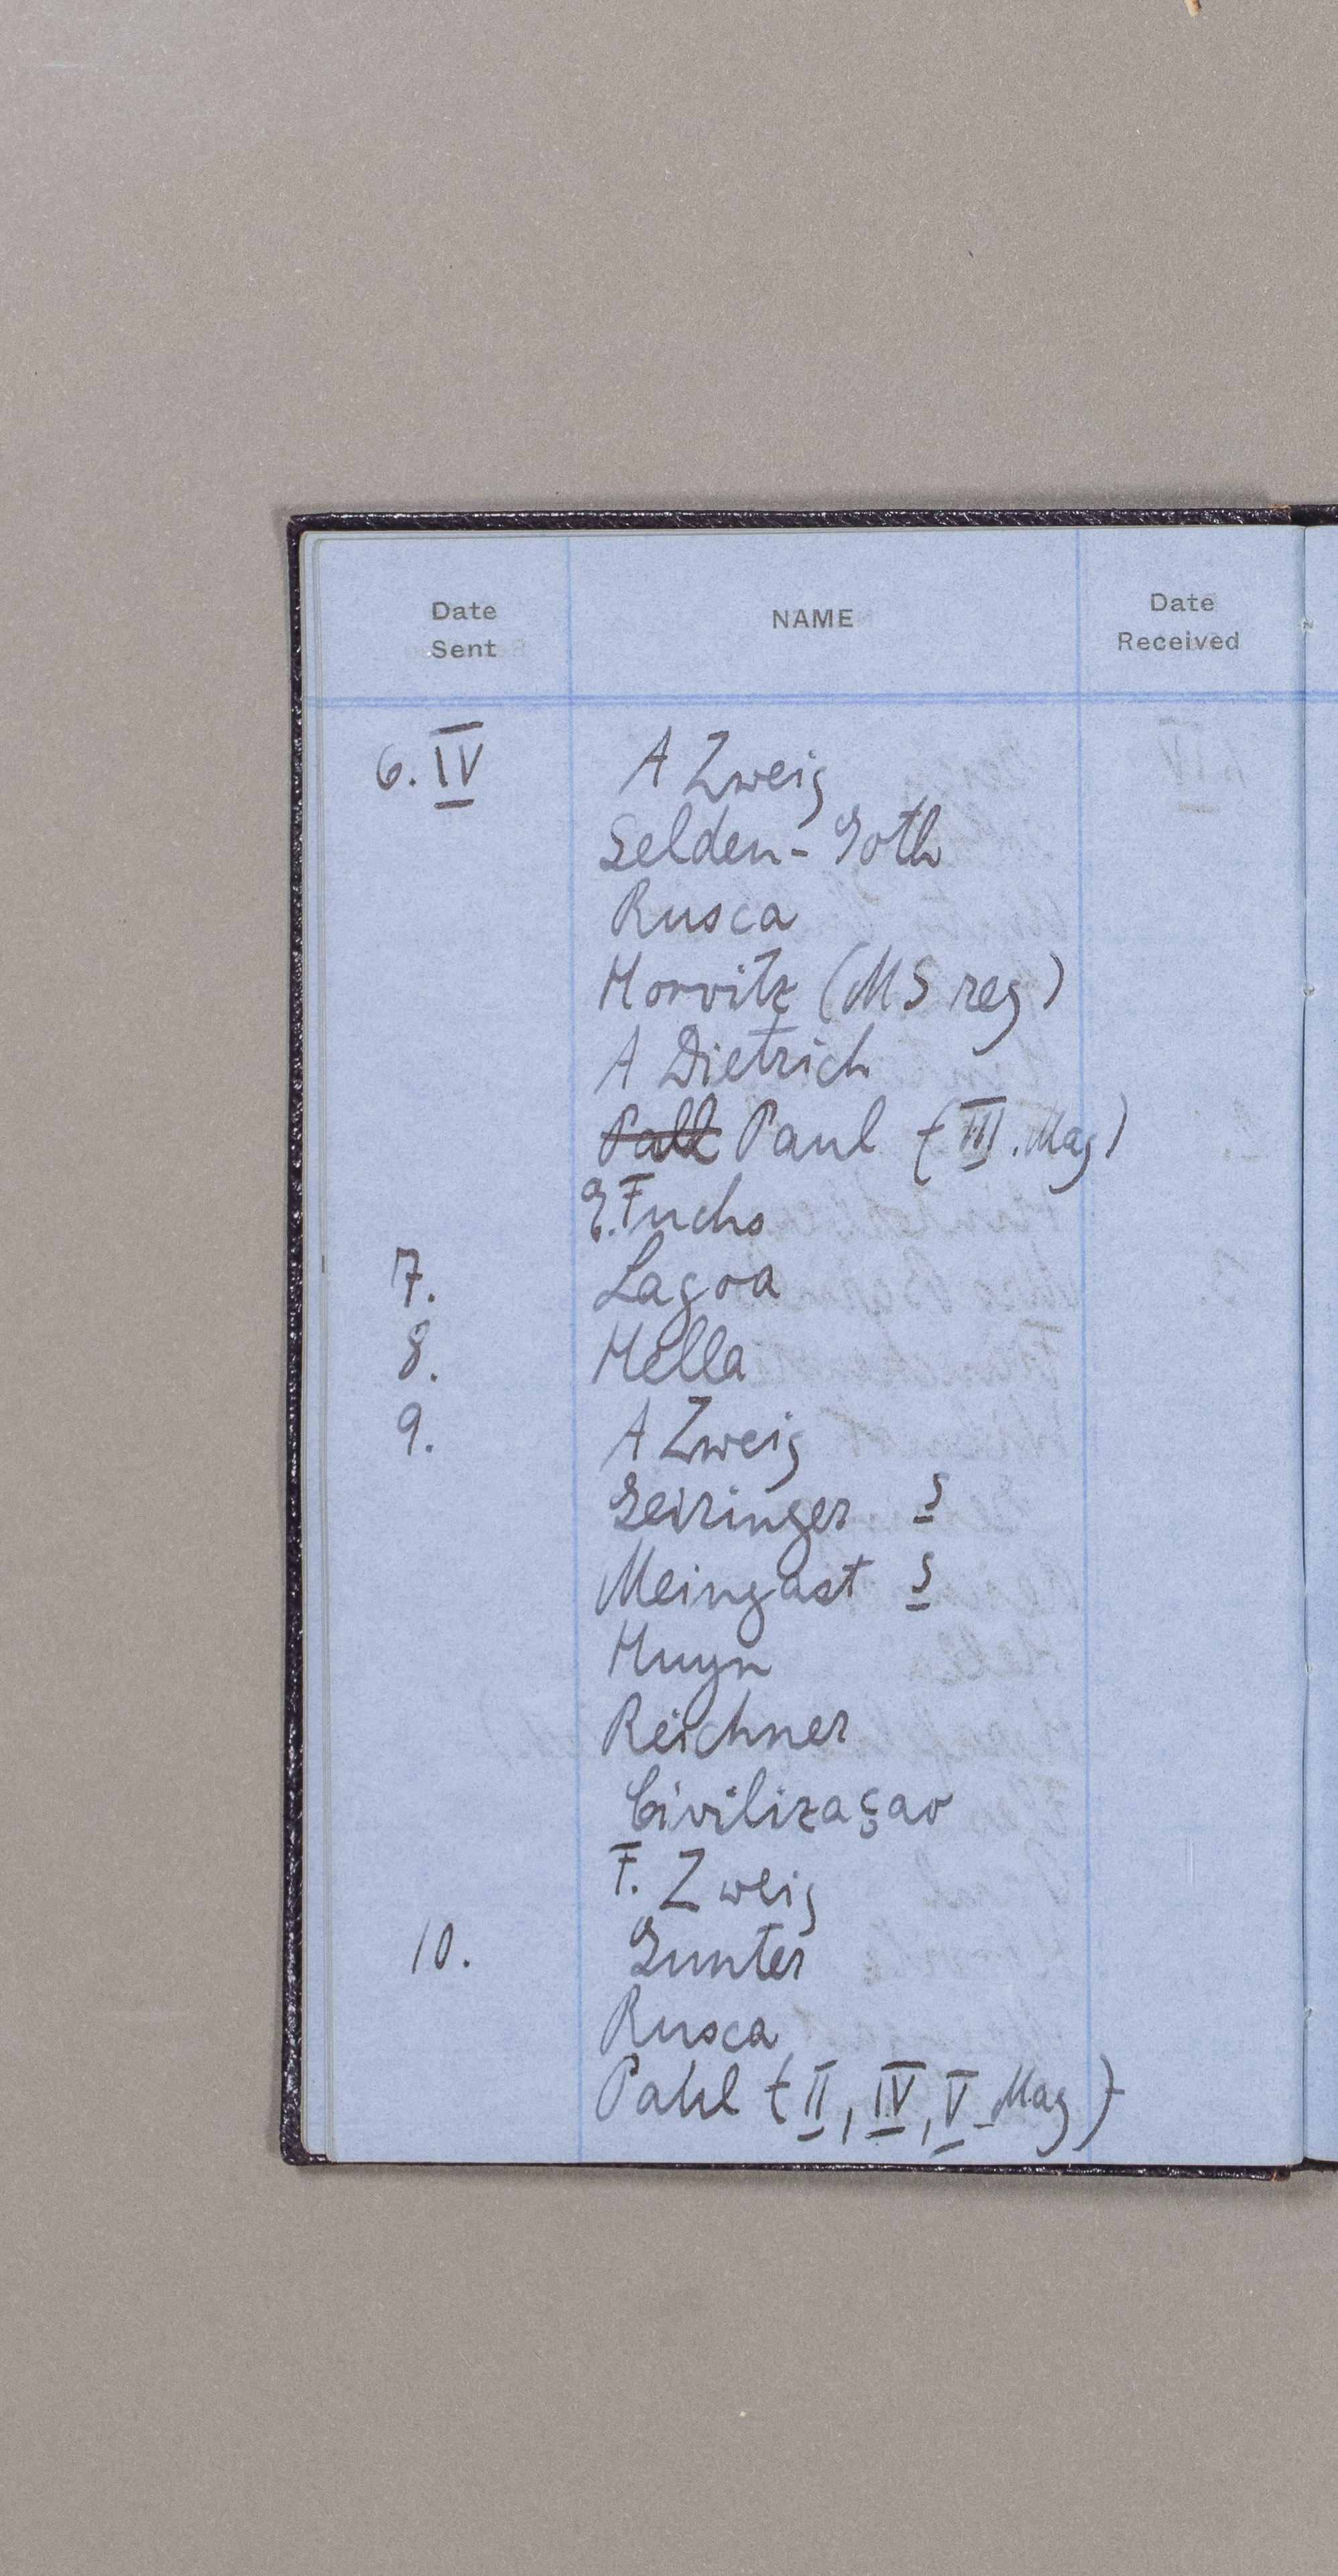 Date Sent NAME Date Received
6. IV A Zweig
Selden-Goth
Rusca
Horvitz (MS reg)
A Dietrich
Pall Paul (III. Mag)
E. Fuchs
7. Lagoa
8. Hella
9. A Zweig
Geiringer S
Meingast S
Huyn
Reichner
Civilizaçao
F. Zweig
10. Gunter
Rusca
Pahl (II, IV, V Mag)